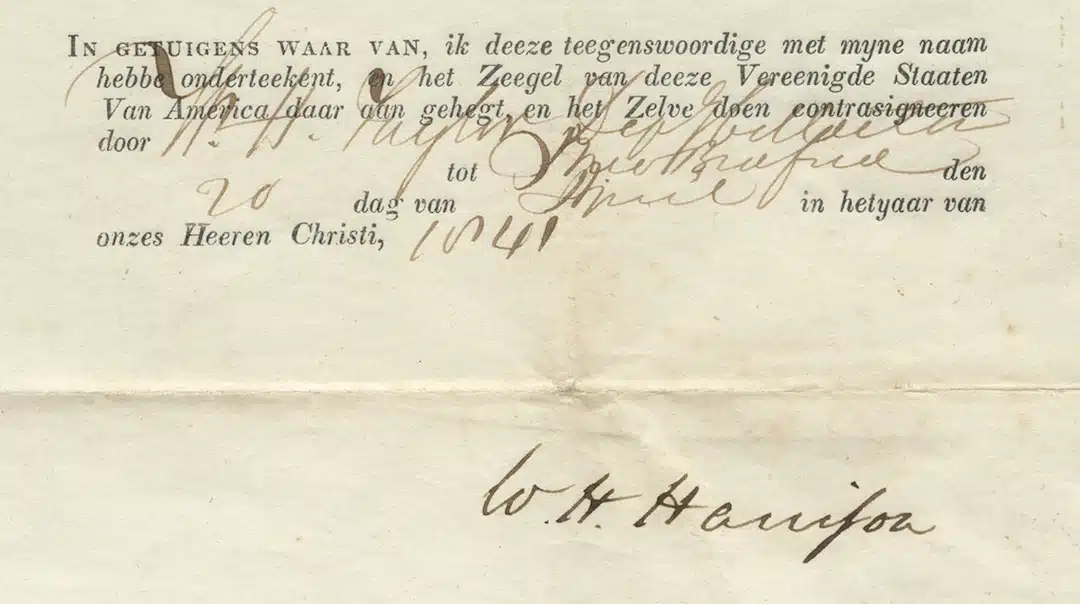 IN GETUIGENS WAAR VAN, ik deeze teegenswoordige met myne naam
hebbe onderteekent, en het Zeegel van deeze Vereenigde Staaten
Van America daar aan gehegt, en het Zelve doen contrasigneeren
door
tot New Bedford den
20 dag van April in hetyaar van
onzes Heeren Christi, 1841
W. H. Harrison